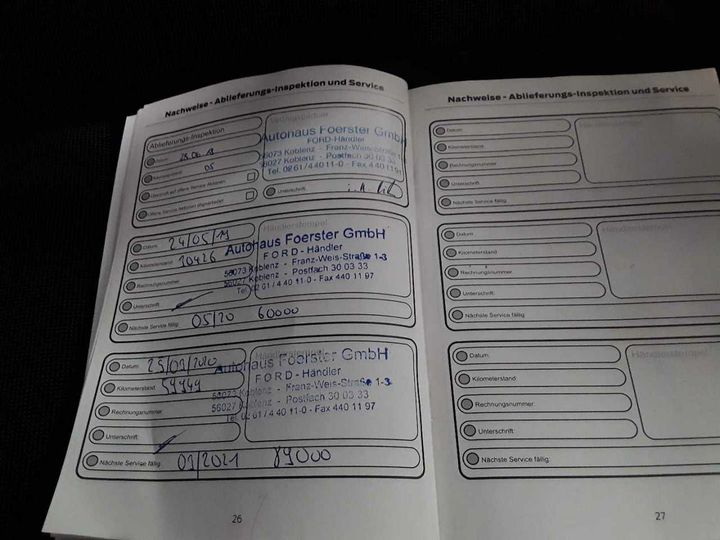 Nachweise - Ablieferungs-Inspektion und Service
Ablieferungs-Inspektion
Autohaus Foerster GmbH
FORD-Händler
56073 Koblenz - Franz-Weis-Straße 1-3
56027 Koblenz - Postfach 30 03 33
Tel. 0261/44011-0 - Fax 440 11 97
Datum
05
Unterschrift:
Datum: 24/05/19
Kilometerstand:
Rechnungsnummer:
Unterschrift:
Nächste Service fällig: 05/20 60000
Händlerstempel
Autohaus Foerster GmbH
FORD - Händler
56073 Koblenz - Franz-Weis-Straße 1-3
56027 Koblenz - Postfach 30 03 33
Tel. 02 61 / 4 40 11-0 - Fax 440 11 97
Datum:
Kilometerstand:
Rechnungsnummer:
Unterschrift:
Nächste Service fällig: 09/2021 89000
Autohaus Foerster GmbH
FORD - Händler
56073 Koblenz - Franz-Weis-Straße 1-3
56027 Koblenz - Postfach 30 03 33
Tel. 02 61 / 4 40 11-0 - Fax 440 11 97
26
Nachweise - Ablieferungs-Inspektion und Service
Datum:
Kilometerstand:
Rechnungsnummer:
Unterschrift:
Nächste Service fällig:
Datum:
Kilometerstand:
Rechnungsnummer:
Unterschrift:
Nächste Service fällig:
Händlerstempel
Datum:
Kilometerstand:
Rechnungsnummer:
Unterschrift:
Nächste Service fällig:
Händlerstempel
27